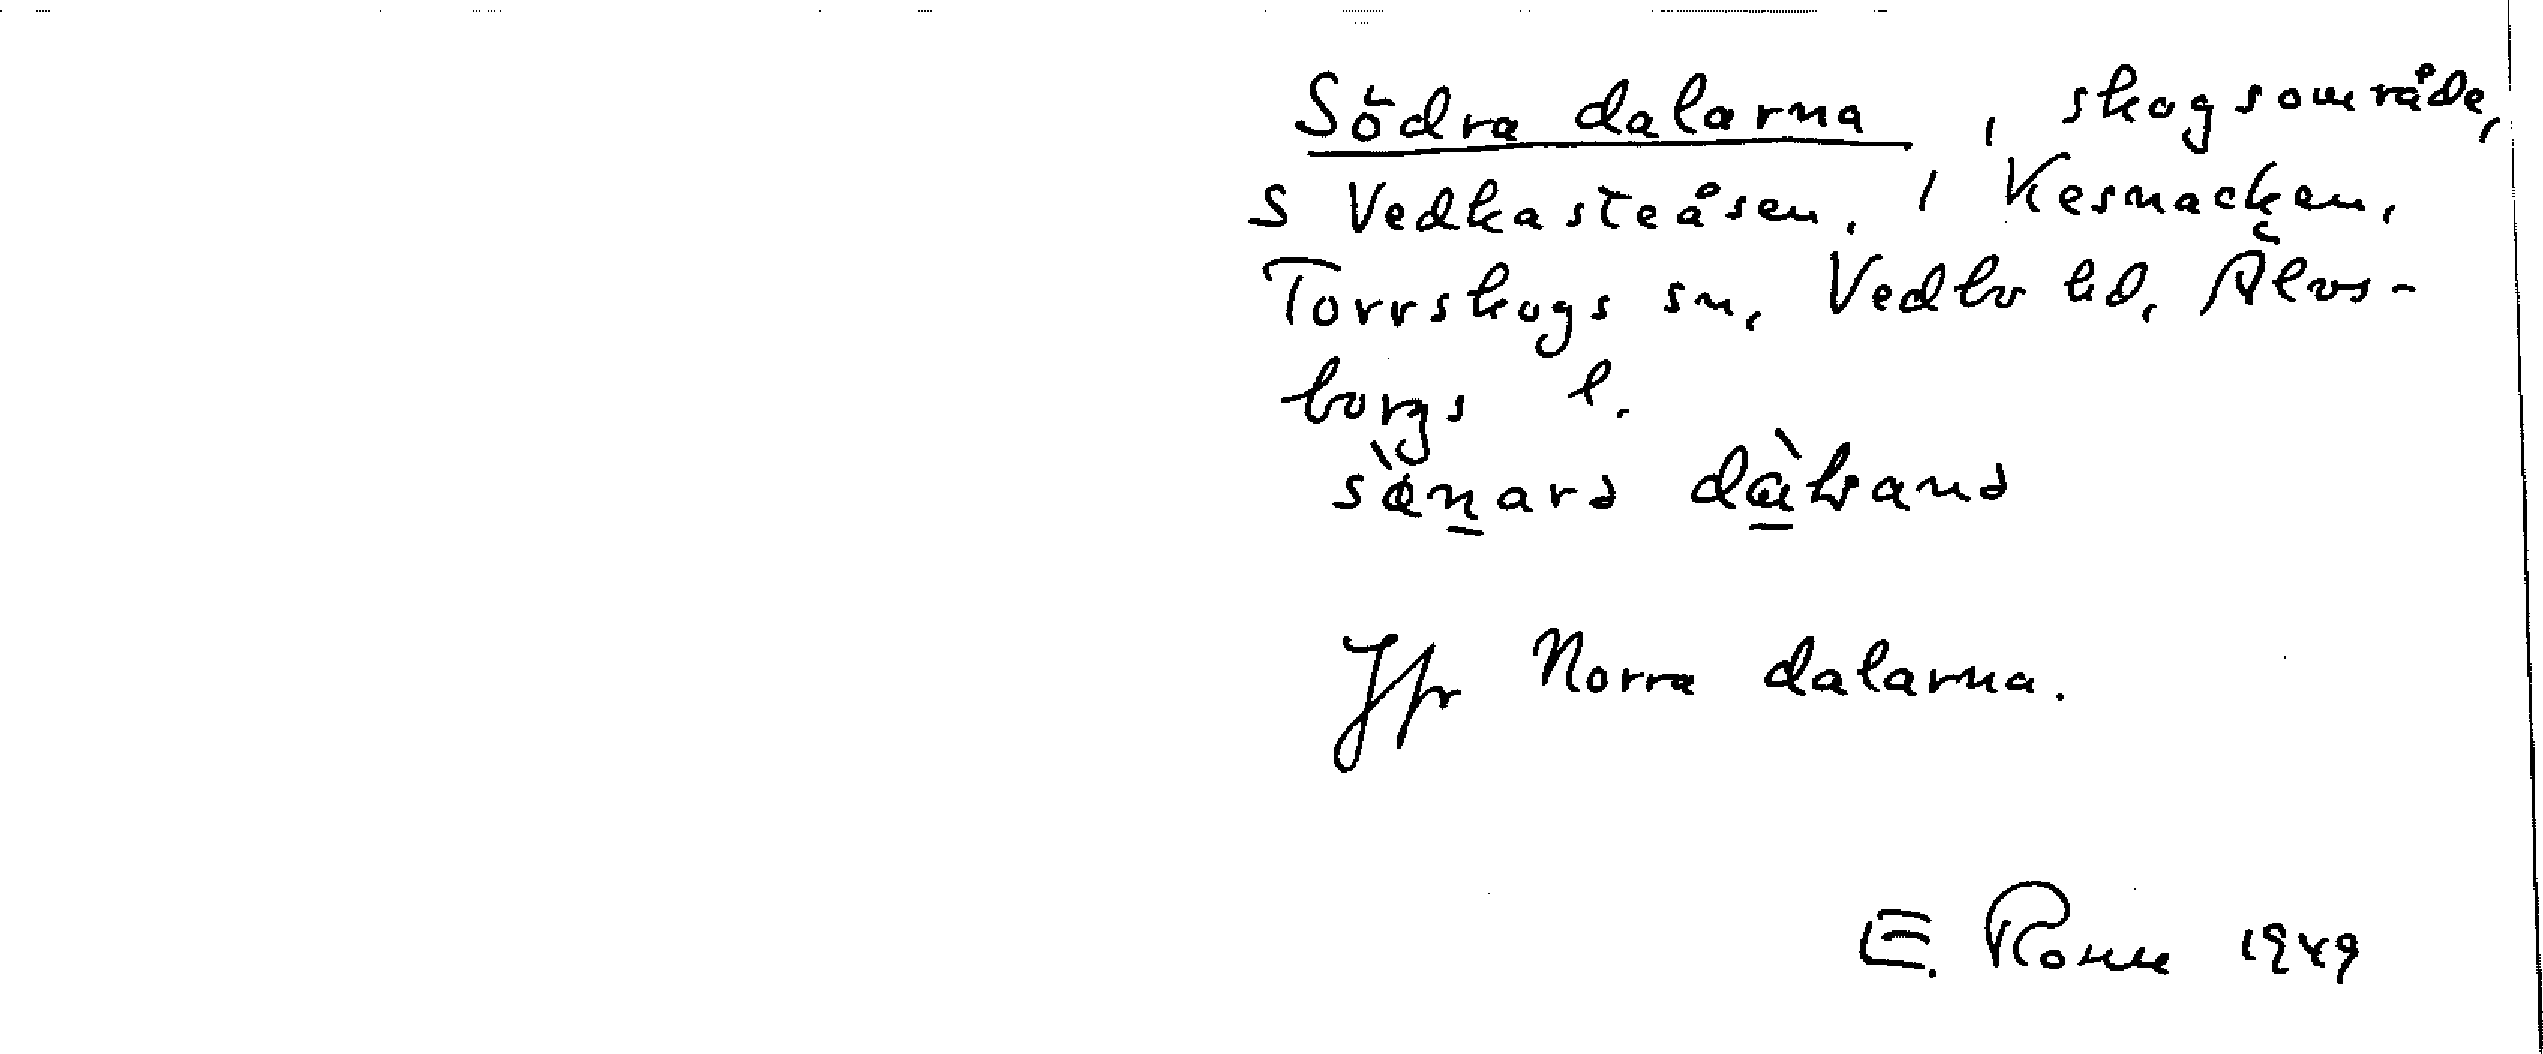 Södra dalarna, skogsområde,
s Vedkasteåsen, i Kesnacken,
Torrskogs sn, Vedbo hd, Älvs-
borgs l.
Jfr Norra dalarna.
E. 1949